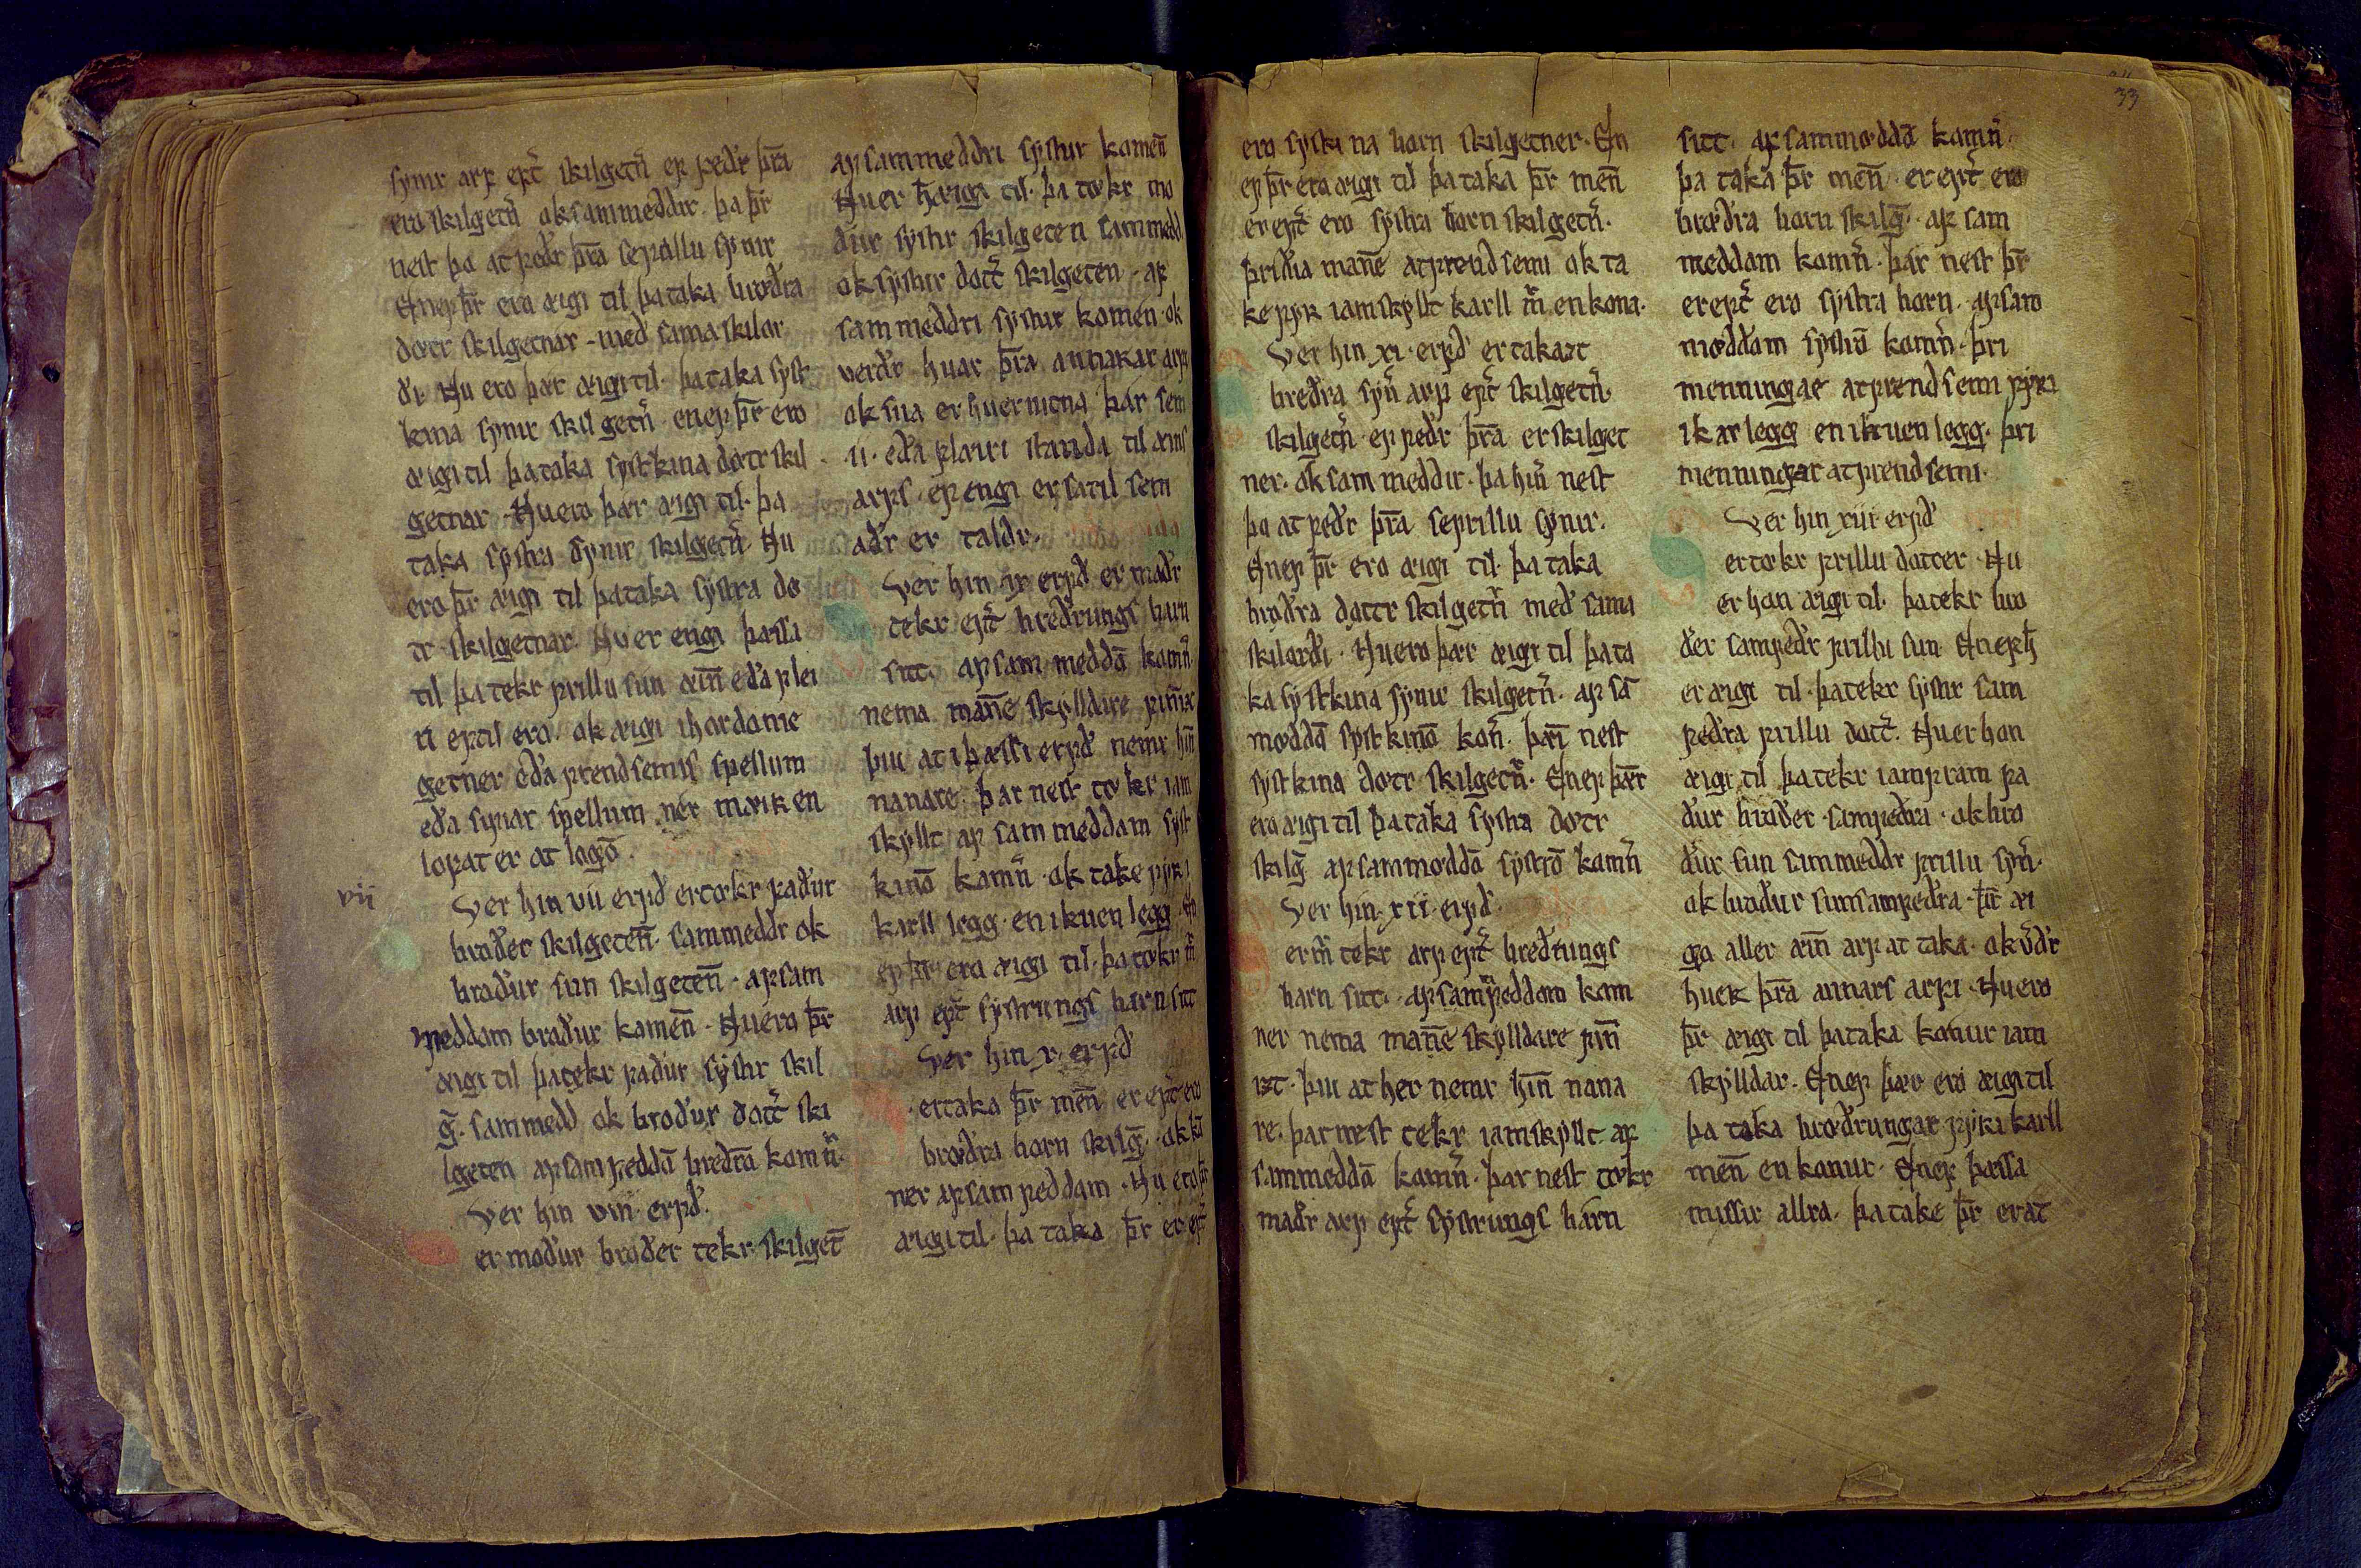 synir arf ept̄ skilgetn̄ ef feðr þr̄a
ero skilgetn̄ ok sammeddir. þa þr̄
nest þo at feðr þr̄a se frillu synir
En ef þr̄ ero æigi til þa taka brøðra
dotr skilgetnar með sama skilor
ði Nu ero þær æigi til. þa taka syst
kina synir skilgetn̄ en ef þr̄ ero
æigi til þa taka systkina dotr skil
getnar. Nu ero þær æigi til. þa
taka systra synir skilgetn̄. Nu
ero þr̄ æigi til þa taka systra do
tr skilgetnar. Nu er engi þessa
til þa tekr frillu sun æin̄ eða flei
ri ef til ero. ok æigi i hordome
getner eða frendsemis spellum
eða sifiar spellum ner mæirr en
lofat er at logō.
vii
Ver hin vii erfð er tøkr faður
broðer skilgeten̄. sammeddr ok
broður sun skilgeten̄. af sam
meddam broður komen̄. Nu ero þr̄
æigi til þa tekr faður systir skil
ḡ. sammedd ok broður dott̄ ski
lgeten af samfeddā bredrā komn̄.
Ver hin viii erfð.
er moður broðer tekr. skilget̄
af sammeddri systur komen̄
Nu er h̄ æigi til. þa tøkr mo
ður systir skilgeten sammedd
ok systur dott̄ skilgeten. af
sammeddri systur komen. ok
verðr huar þr̄a annarar arfi
ok sua er huernitna þar sem
ii. eða flæiri standa til æins
arfs. ef engi er sa til sem
aðr er taldr.
Ver hin ix erfð er maðr
tekr ept̄ breðrungs barn
sitt. af sam meddā komn̄.
nema mann̄e skylldare fin̄iz
þui at i þæssi erfð nemr hin̄
nanare. þar nest tøkr iam
skyllt af sam meddam syst
kinō komn̄. ok take fyri
karll legg. en i kuen legg. En
ef þr̄ ero æigi til. þa tøkr m̄
arf ept̄ systrungs barn sitt
Ver hin x. erfð
er taka þr̄ men̄ er ept̄ ero
brøðra born skilḡ. ok kō
ner af sam feddam. Nu ero þr̄
æigi til. þa taka þr̄ er ept̄
33
ero systkina born skilgetner. En
ef þr̄ ero æigi til þa taka þr̄ men̄
er ept̄ ero systra born skilgetn̄.
þriðia man̄e at frendsemi ok ta
ke fyr iamskyllt karll m̄ en kona.
Ver hin xi. erfð er taka at
breðra syn̄ arf ept̄ skilgetn̄.
skilgetn̄ ef feðr þr̄a er skilget
ner. ok sam meddir. þa hin̄ nest
þo at feðr þr̄a se frillu synir.
En ef þr̄ ero æigi til. þa taka
brøðra dottr skilgetn̄ með sama
skilorði. Nu ero þær æigi til þa ta
ka systkina synir skilgetn̄. af sā
møddā systkinō kōn̄. þæi nest
systkina dotr skilgetn̄. En ef þær
ero æigi til þa taka systra dotr
skilḡ af sammøddā systrō komn̄
Ver hin. xii. erfð.
er m̄ tekr arf ept̄ breðrungs
barn sitt. af samfeddom kom
ner nema man̄e skylldare fin̄
izt. þui at her nemr hin̄ nana
re. þar nest tekr iamskyllt. af
sammeddā komn̄. þar nest tøkr
maðr arf ept̄ systrungs barn
sitt. af sammøddā komn̄.
þa taka þr̄ men̄. er ept̄ ero
brøðra born skilḡ. af sam
meddam komn̄. þar nest þr̄
er ept̄ ero systra born. af sam
møddam systrō komn̄. þri
menningar at frendsemi fyri
i karlegg en i kuen legg. þri
menningar at frendsemi.
Ver hin xiii erfð
er tøkr frillu dotter. Nu
er hon æigi til. þa tekr bro
ðer samfeðr frillu sun En ef h̄
er æigi til. þa tekr systir sam
feðra frillu dott̄. Nu er hon
æigi til þa tekr iamfram fa
ður broðer. samfeðra. ok bro
ður sun sammeddr frillu syn̄.
ok broður sun samfeðra. þr̄ æi
ga aller æin̄ arf at taka. ok v̄ðr
huer þr̄a annars arfi. Nu ero
þr̄ æigi til þa taka konur iam
skylldar. En ef þær ero æigi til
þa taka brøðrungar fyri karll
men̄ en konur. En ef þæssa
missir allra. þa take þr̄ er at